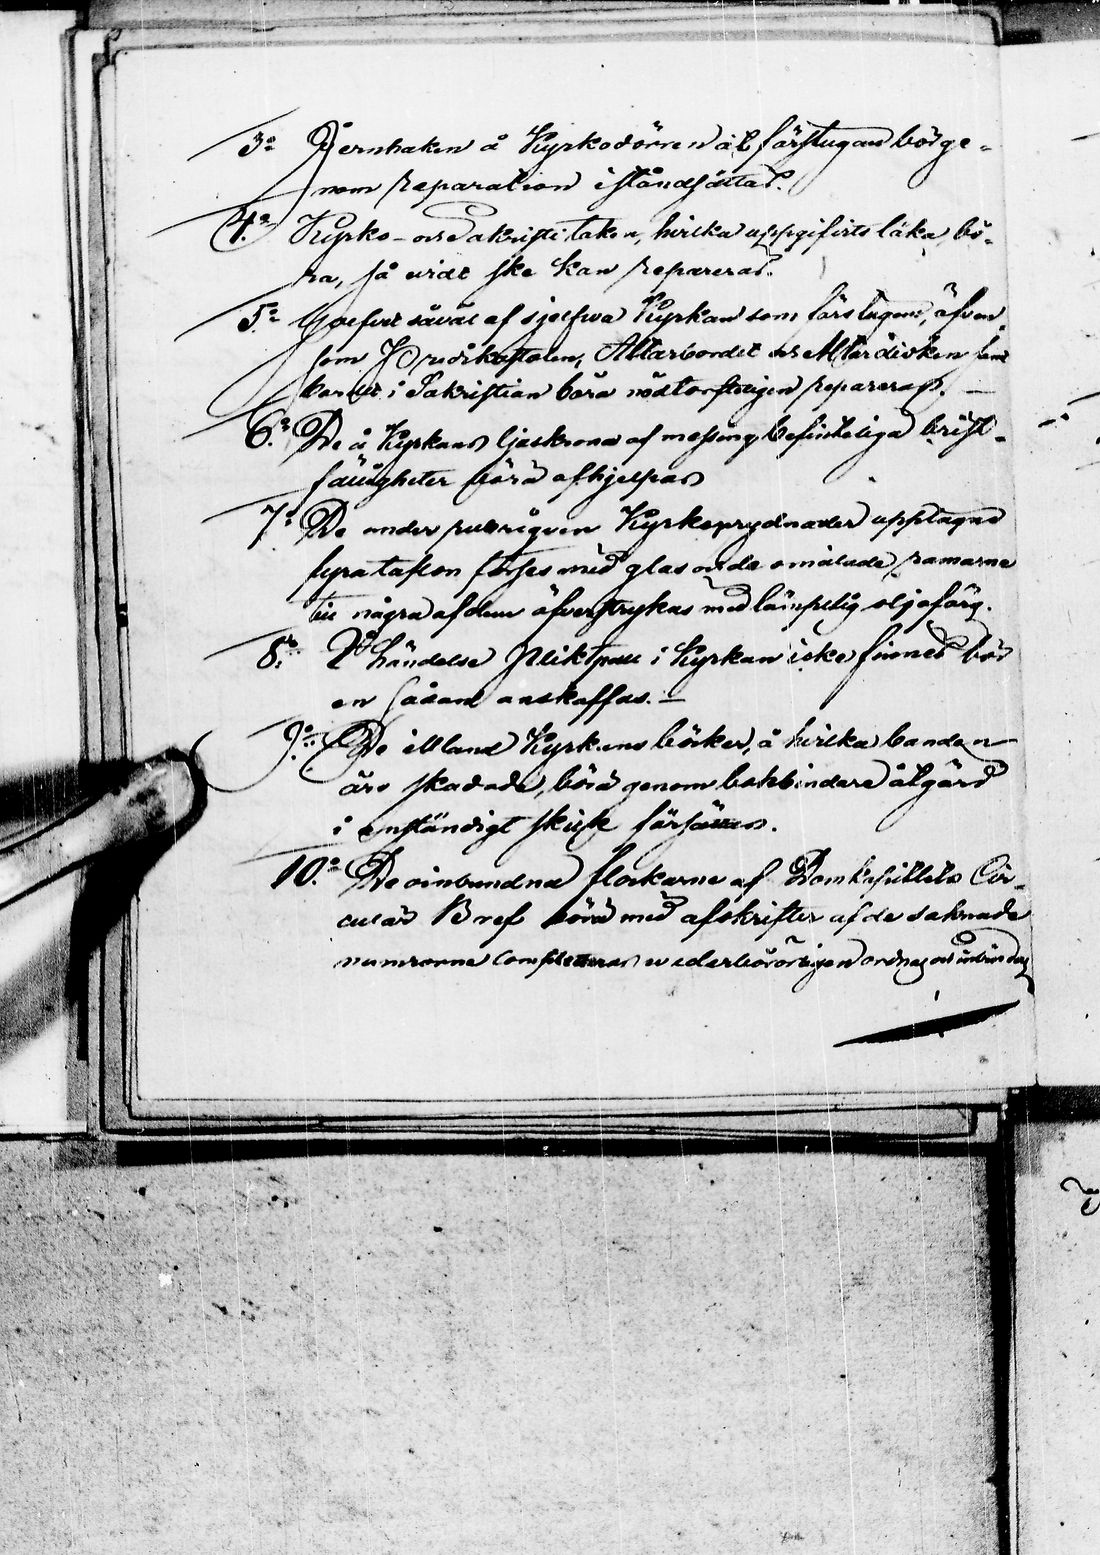 3:o Jernhaken å Kyrkodörren åt förstugan bör ge-
nom reparation iståndsättas.
4:o Kyrko- och Sakristi taken, hvilka uppgifvits läka, bö-
ra, så vidt ske kan repareras.
5:o Golfvet såväl af sjelfva Kyrkan som förstugan, äfven
som Predikstolen, Altarbordet och Altardisken samt
bordet i Sakristian böra nödtorfteligen repareras. –
6:o De å Kyrkans ljuskrona af messing befinteliga brist-
fälligheter böra afhjelpas
7:o De under rubriquen Kyrkoprydnader upptagne
fyra taflor förses med glas och de omålade ramarne
till några af dem öfverstrykas med lämpelig oljefärg.
8:o I händelse Pliktpall i Kyrkan icke finnes bör
en sådan anskaffas. –
9:o De ibland Kyrkans böcker, å hvilka banden
äro skadade, böra genom bokbindare åtgärd
i anständigt skick försättas.
10:o De oinbundna flockarne af Domkapitlets Cir-
culär Bref böra med afskrifter af de saknade
numrorne completteras vederbörligen ordnas och inbindas